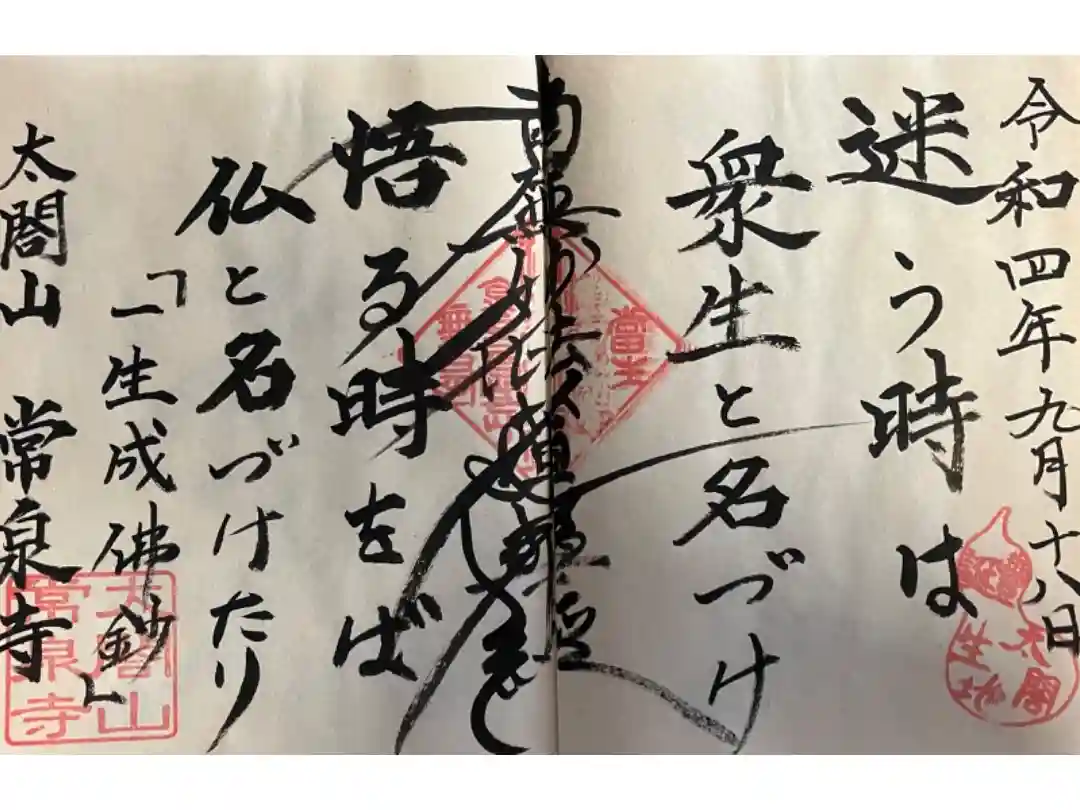 令和四年九月十八日
迷う時は
衆生と名づけ
南無妙法蓮華経
悟る時をば
仏と名づけたり
「一生成佛鈔」
太閤山 常泉寺
太閤
生地
太閤山
常泉寺